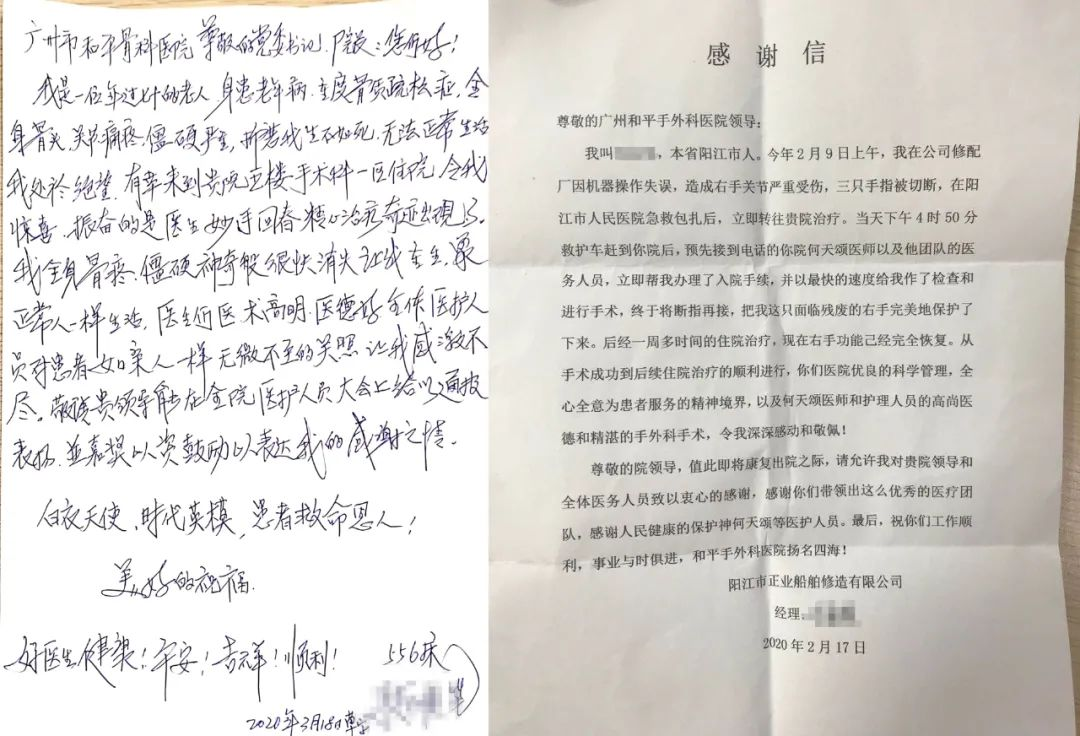 广州市和平骨科医院尊敬的党委书记、院长:您们好!
我是一位年过七十的老人 身患老年病.重度骨质疏松症,全
身骨头、关节痛疼.僵硕严重,折若我生不如死,无法正常生活
我处於绝望.有幸来到贵院五楼手术科一区住院,令我
惊喜、振奋的是医生妙手回春 精心治疗奇迹出现了.
我全身骨疼、僵硕神奇般很快消失 让我重生,象
正常人一样生活,医生们医术高明.医德好全体医护人
员对患者如亲人一样无微不至的关照 让我感激不
尽。敬贵领导能在全院医护人员大会上给以通报
表扬.并嘉奖以资鼓励以表达我的感谢之情.
白衣天使,时代英模,患者救命恩人!
美好的祝福.
好医生健康!平安!吉祥!顺利! 556床
2020年3月18日
感谢信
尊敬的广州和平手外科医院领导:
我叫 ,本省阳江市人。今年2月9日上午,我在公司修配
厂因机器操作失误,造成右手关节严重受伤,三只手指被切断,在阳
江市人民医院急救包扎后,立即转往贵院治疗。当天下午4时50分
救护车赶到你院后,预先接到电话的你院何天颂医师以及他团队的医
务人员,立即帮我办理了入院手续,并以最快的速度给我作了检查和
进行手术,终于将断指再接,把我这只面临残废的右手完美地保护了
下来。后经一周多时间的住院治疗,现在右手功能己经完全恢复。从
手术成功到后续住院治疗的顺利进行,你们医院优良的科学管理,全
心全意为患者服务的精神境界,以及何天颂医师和护理人员的高尚医
德和精湛的手外科手术,令我深深感动和敬佩!
尊敬的院领导,值此即将康复出院之际,请允许我对贵院领导和
全体医务人员致以衷心的感谢,感谢你们带领出这么优秀的医疗团
队,感谢人民健康的保护神何天颂等医护人员。最后,祝你们工作顺
利,事业与时俱进,和平手外科医院扬名四海!
阳江市正业船舶修造有限公司
经理:
2020年2月17日